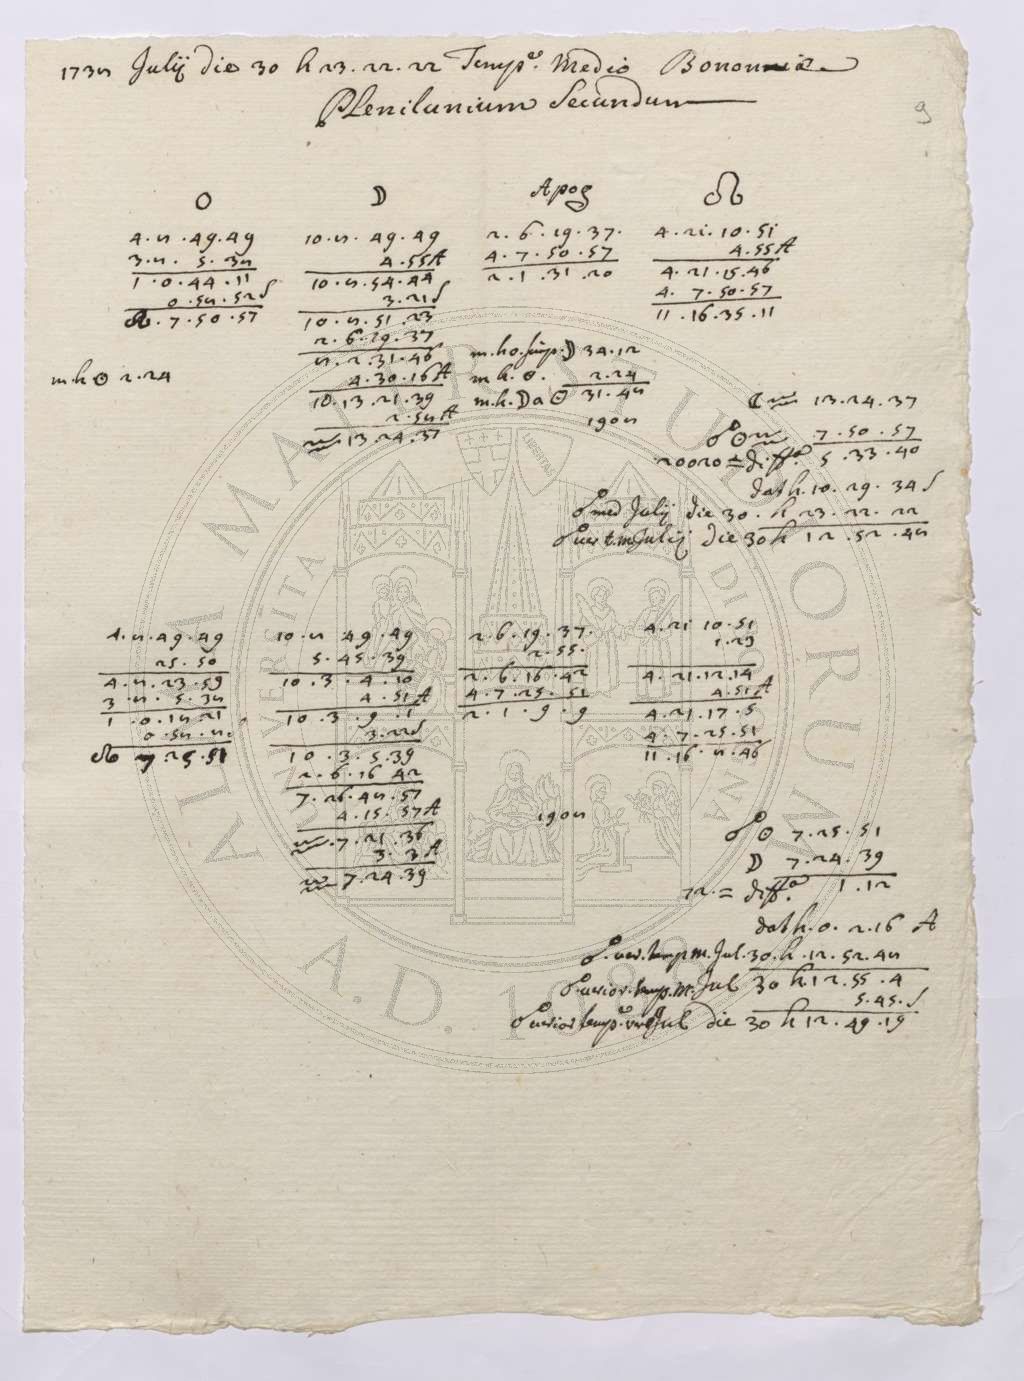 1738 Julij die 30 h 23.22.22 Temp.e Medio Bononiæ
Plenilunium Secundum
9
☉ ☽ Apog ☊
4.8.49.49 10.8.49.49 2.6.19.37. 4.21.10.51
3.8.5.38 4.55A 4.7.50.57 4.55A
1.0.44.11 10.8.54.44 2.1.31.20 4.21.15.46
0.58.52S 3.21S 4.7.50.57
♌.7.50.57 10.8.51.23 11.16.35.11
2.6.19.37
8.2.31.46 m.ho.simp.☽ 34.12
m.h.☉ 2.24 4.30.16A m.h.☉. 2.24
10.13.21.39 m.h.☽ a ☉ 31.48 ☾♒ 13.24.37
2.58A 1908
♒ 13.24.37 ☍☉♒ 7.50.57
20020=diff.a 5.33.40
dat h.10.29.34 S
☍ med Julij die 30. h 23.22.22
☍ ver t.m. Julij die 30 h 12.52.48
4.8.49.49 10.8.49.49 2.6.19.37. 4.21.10.51
25.50 5.45.39 2.55. 1.23
4.8.23.59 10.3.4.10 2.6.16.42 4.21.12.14
3.8.5.38 4.51A 4.7.25.51 4.51A
1.0.18.21 10.3.9.1 2.1.9.9 4.21.17.5
0.58.8. 3.22S 4.7.25.51
♌ 7.25.51 10.3.5.39 11.16.8.46
2.6.16.42
7.26.48.57
4.15.57A 1908
♒.7.21.36 ☍☉ 7.25.51
3.3A ☽ 7.24.39
♒ 7.24.39 72.= diff.a 1.12
dat h.0.2.16 A
☍.ver.temp.m.Jul.30.h.12.52.48
☍.verior.temp.m.Jul 30 h.12.55.4
5.45.S
☍ verior temp.e vero Jul die 30 h 12.49.19
ALMA MATER STUDIORUM
UNIVERSITÀ DI BOLOGNA
A.D. 1088
LIBERTAS